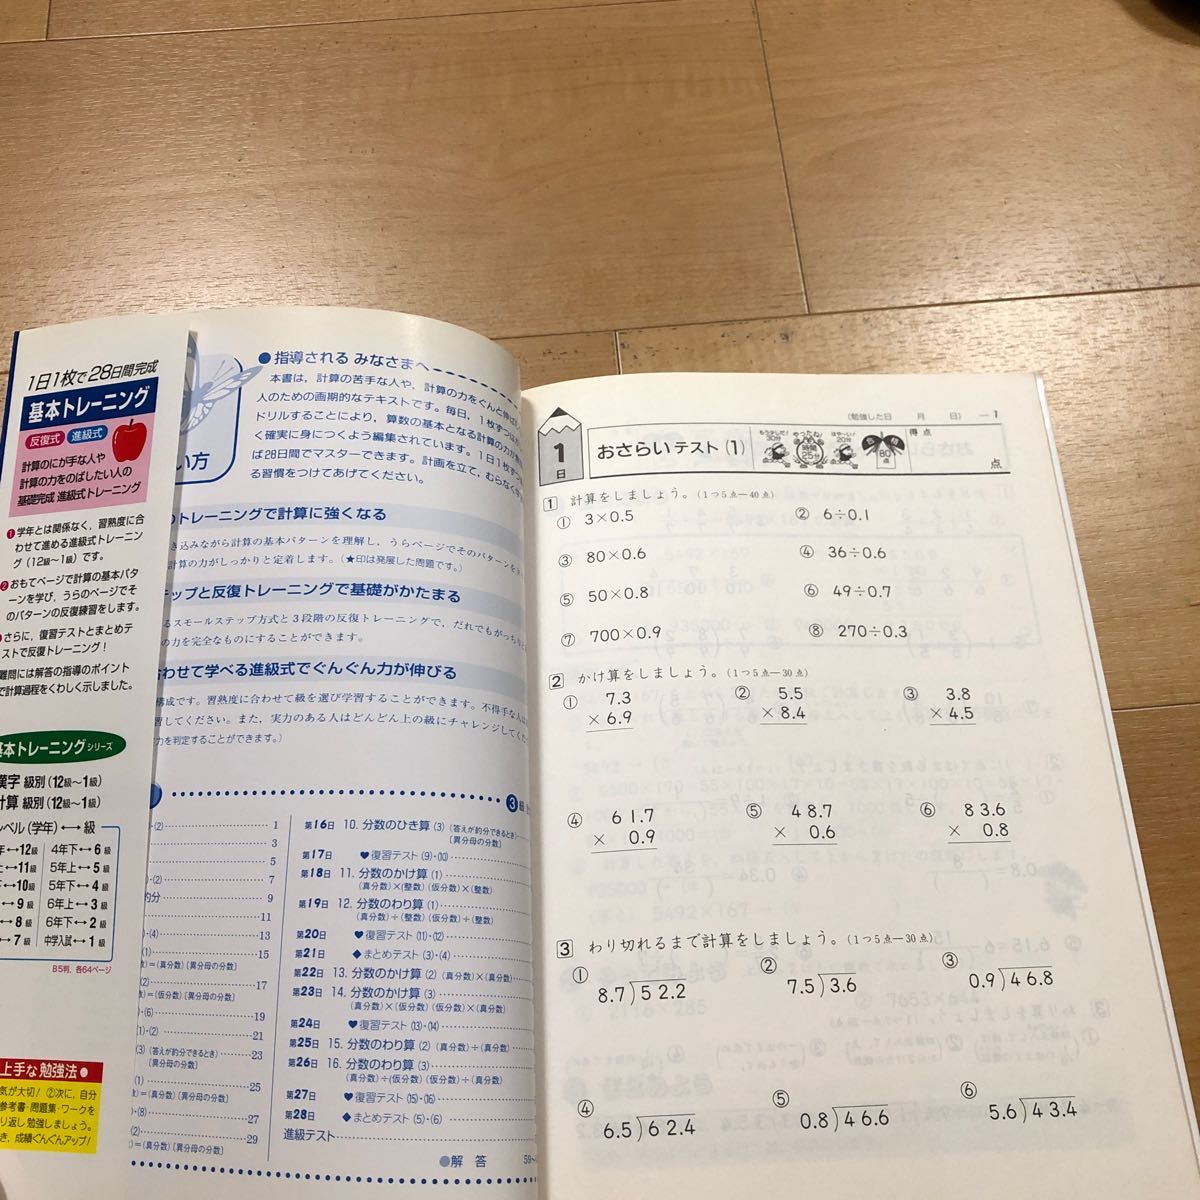 1日1枚で28日間完成
基本トレーニング
反復式 進級式
計算のにが手な人や
計算の力をのばしたい人の
基礎完成 進級式トレーニング
❶学年とは関係なく,習熟度に合
わせて進める進級式トレーニン
グ(12級〜1級)です。
❷おもてページで計算の基本パタ
ーンを学び,うらのページでそ
のパターンの反復練習をします。
さらに,復習テストとまとめテ
ストで反復トレーニング!
難問には解答の指導のポイント
で計算過程をくわしく示しました。
基本トレーニングシリーズ
漢字 級別(12級〜1級)
計算 級別(12級〜1級)
ベル(学年)⟷級
⟷12級 4年下⟷6級
⟷11級 5年上⟷5級
⟷10級 5年下⟷4級
⟷9級 6年上⟷3級
⟷8級 6年下⟷2級
⟷7級 中学入試⟷1級
B5判.各64ページ
上手な勉強法●
気が大切! ②次に,自分
参考書・問題集・ワークを
り返し勉強しましょう。
き,成績ぐんぐんアップ!
い方
●指導される みなさまへ
本書は,計算の苦手な人や,計算の力をぐんと伸ば
人のための画期的なテキストです。毎日,1枚ずつ
ドリルすることにより,算数の基本となる計算の力が
く確実に身につくよう編集されています。1日1枚ず
ば28日間でマスターできます。計画を立て,むらなく
る習慣をつけてあげてください。
のトレーニングで計算に強くなる
き込みながら計算の基本パターンを理解し,うらページでそのパターンを
計算の力がしっかりと定着します。(★印は発展した問題です。)
テップと反復トレーニングで基礎がかたまる
るスモールステップ方式と3段階の反復トレーニングで,だれでもがっちり
の力を完全なものにすることができます。
わせて学べる進級式でぐんぐん力が伸びる
構成です。習熟度に合わせて級を選び学習することができます。不得手な人は
習してください。また,実力のある人はどんどん上の級にチャレンジしてく
力を判定することができます。)
❸級
・(2) 1
3
5
・(2) 7
約分 9
11
・(4) 13
(1) 15
)=(真分数)〔異分母の分数〕
・(2) 17
)=(仮分数)〔異分母の分数〕
・(6) 19
(1)・(2) 21
(3)(答えが約分できるとき) 23
〔異分母の分数〕
(1) 25
)=(真分数)〔異分母の分数〕
・(8) 27
(2) 29
)=(真分数)〔異分母の分数〕
第16日 10. 分数のひき算(3)(答えが約分できるとき)
〔異分母の分数〕
第17日 ♥復習テスト(9)・(10)
第18日 11. 分数のかけ算(1)
(真分数)×(整数)(仮分数)×(整数)
第19日 12. 分数のわり算(1)
(真分数)÷(整数)(仮分数)÷(整数)
第20日 ♥復習テスト(11)・(12)
第21日 ◆まとめテスト(3)・(4)
第22日 13. 分数のかけ算(2)(真分数)×(真分数)
第23日 14. 分数のかけ算(3)
(真分数)×(仮分数)(仮分数)×(真分数)
第24日 ♥復習テスト(13)・(14)
第25日 15. 分数のわり算(2)(真分数)÷(真分数)
第26日 16. 分数のわり算(3)
(真分数)÷(仮分数)(仮分数)÷(真分数)
第27日 ♥復習テスト(15)・(16)
第28日 ◆まとめテスト(5)・(6)
進級テスト
●解 答 59〜
(勉強した日 月 日) —1
1日
おさらいテスト(1)
もう少しだ! 30分
やったね! 時間25分
はや〜い! 20分
合格 80点
得点
点
1 計算をしましょう。(1つ5点—40点)
① 3×0.5 ② 6÷0.1
③ 80×0.6 ④ 36÷0.6
⑤ 50×0.8 ⑥ 49÷0.7
⑦ 700×0.9 ⑧ 270÷0.3
2 かけ算をしましょう。(1つ5点—30点)
① 7.3 ② 5.5 ③ 3.8
×6.9 ×8.4 ×4.5
④ 61.7 ⑤ 48.7 ⑥ 83.6
× 0.9 × 0.6 × 0.8
3 わり切れるまで計算をしましょう。(1つ5点—30点)
① ② ③
8.7)52.2 7.5)3.6 0.9)46.8
④ ⑤ ⑥
6.5)62.4 0.8)46.6 5.6)43.4